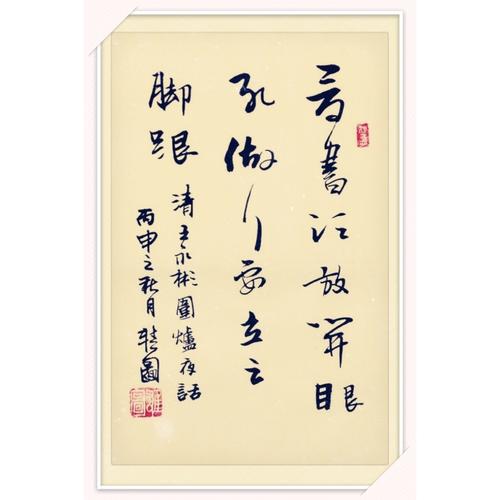 看書須放開眼
孔做人要立定
脚跟
清王永彬圍爐夜話
丙申之秋月圖